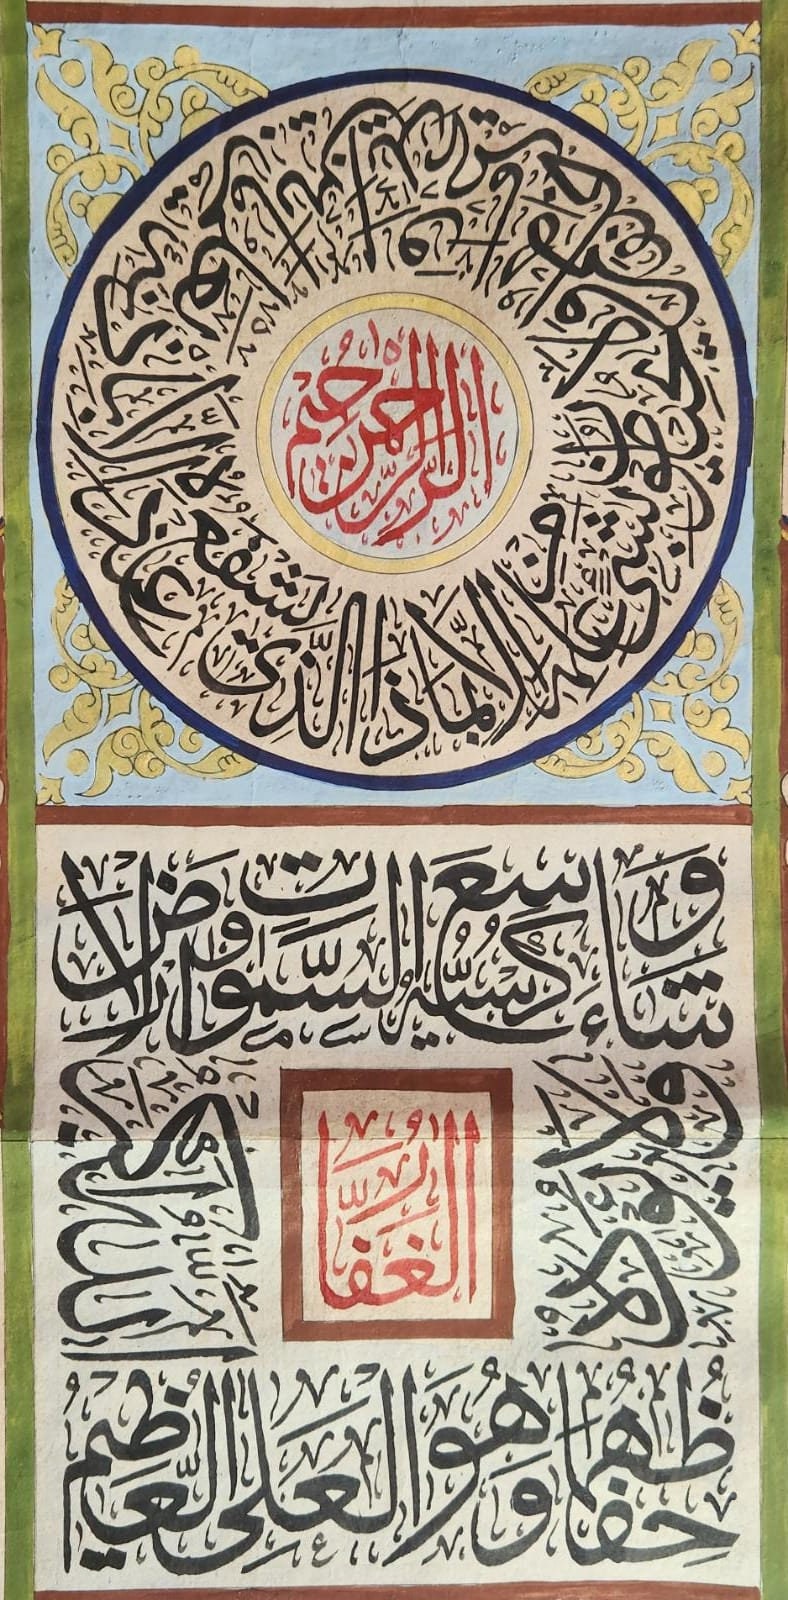 الرحمن الرحيم
ذا الذي يشفع عنده الا باذنه يعلم ما بين ايديهم وما خلفهم ولا يحيطون بشئ من علمه الا بما
شاء وسع كرسيه السموات والارض
ولا يؤده
الغفار
حفظهما وهو العلي العظيم